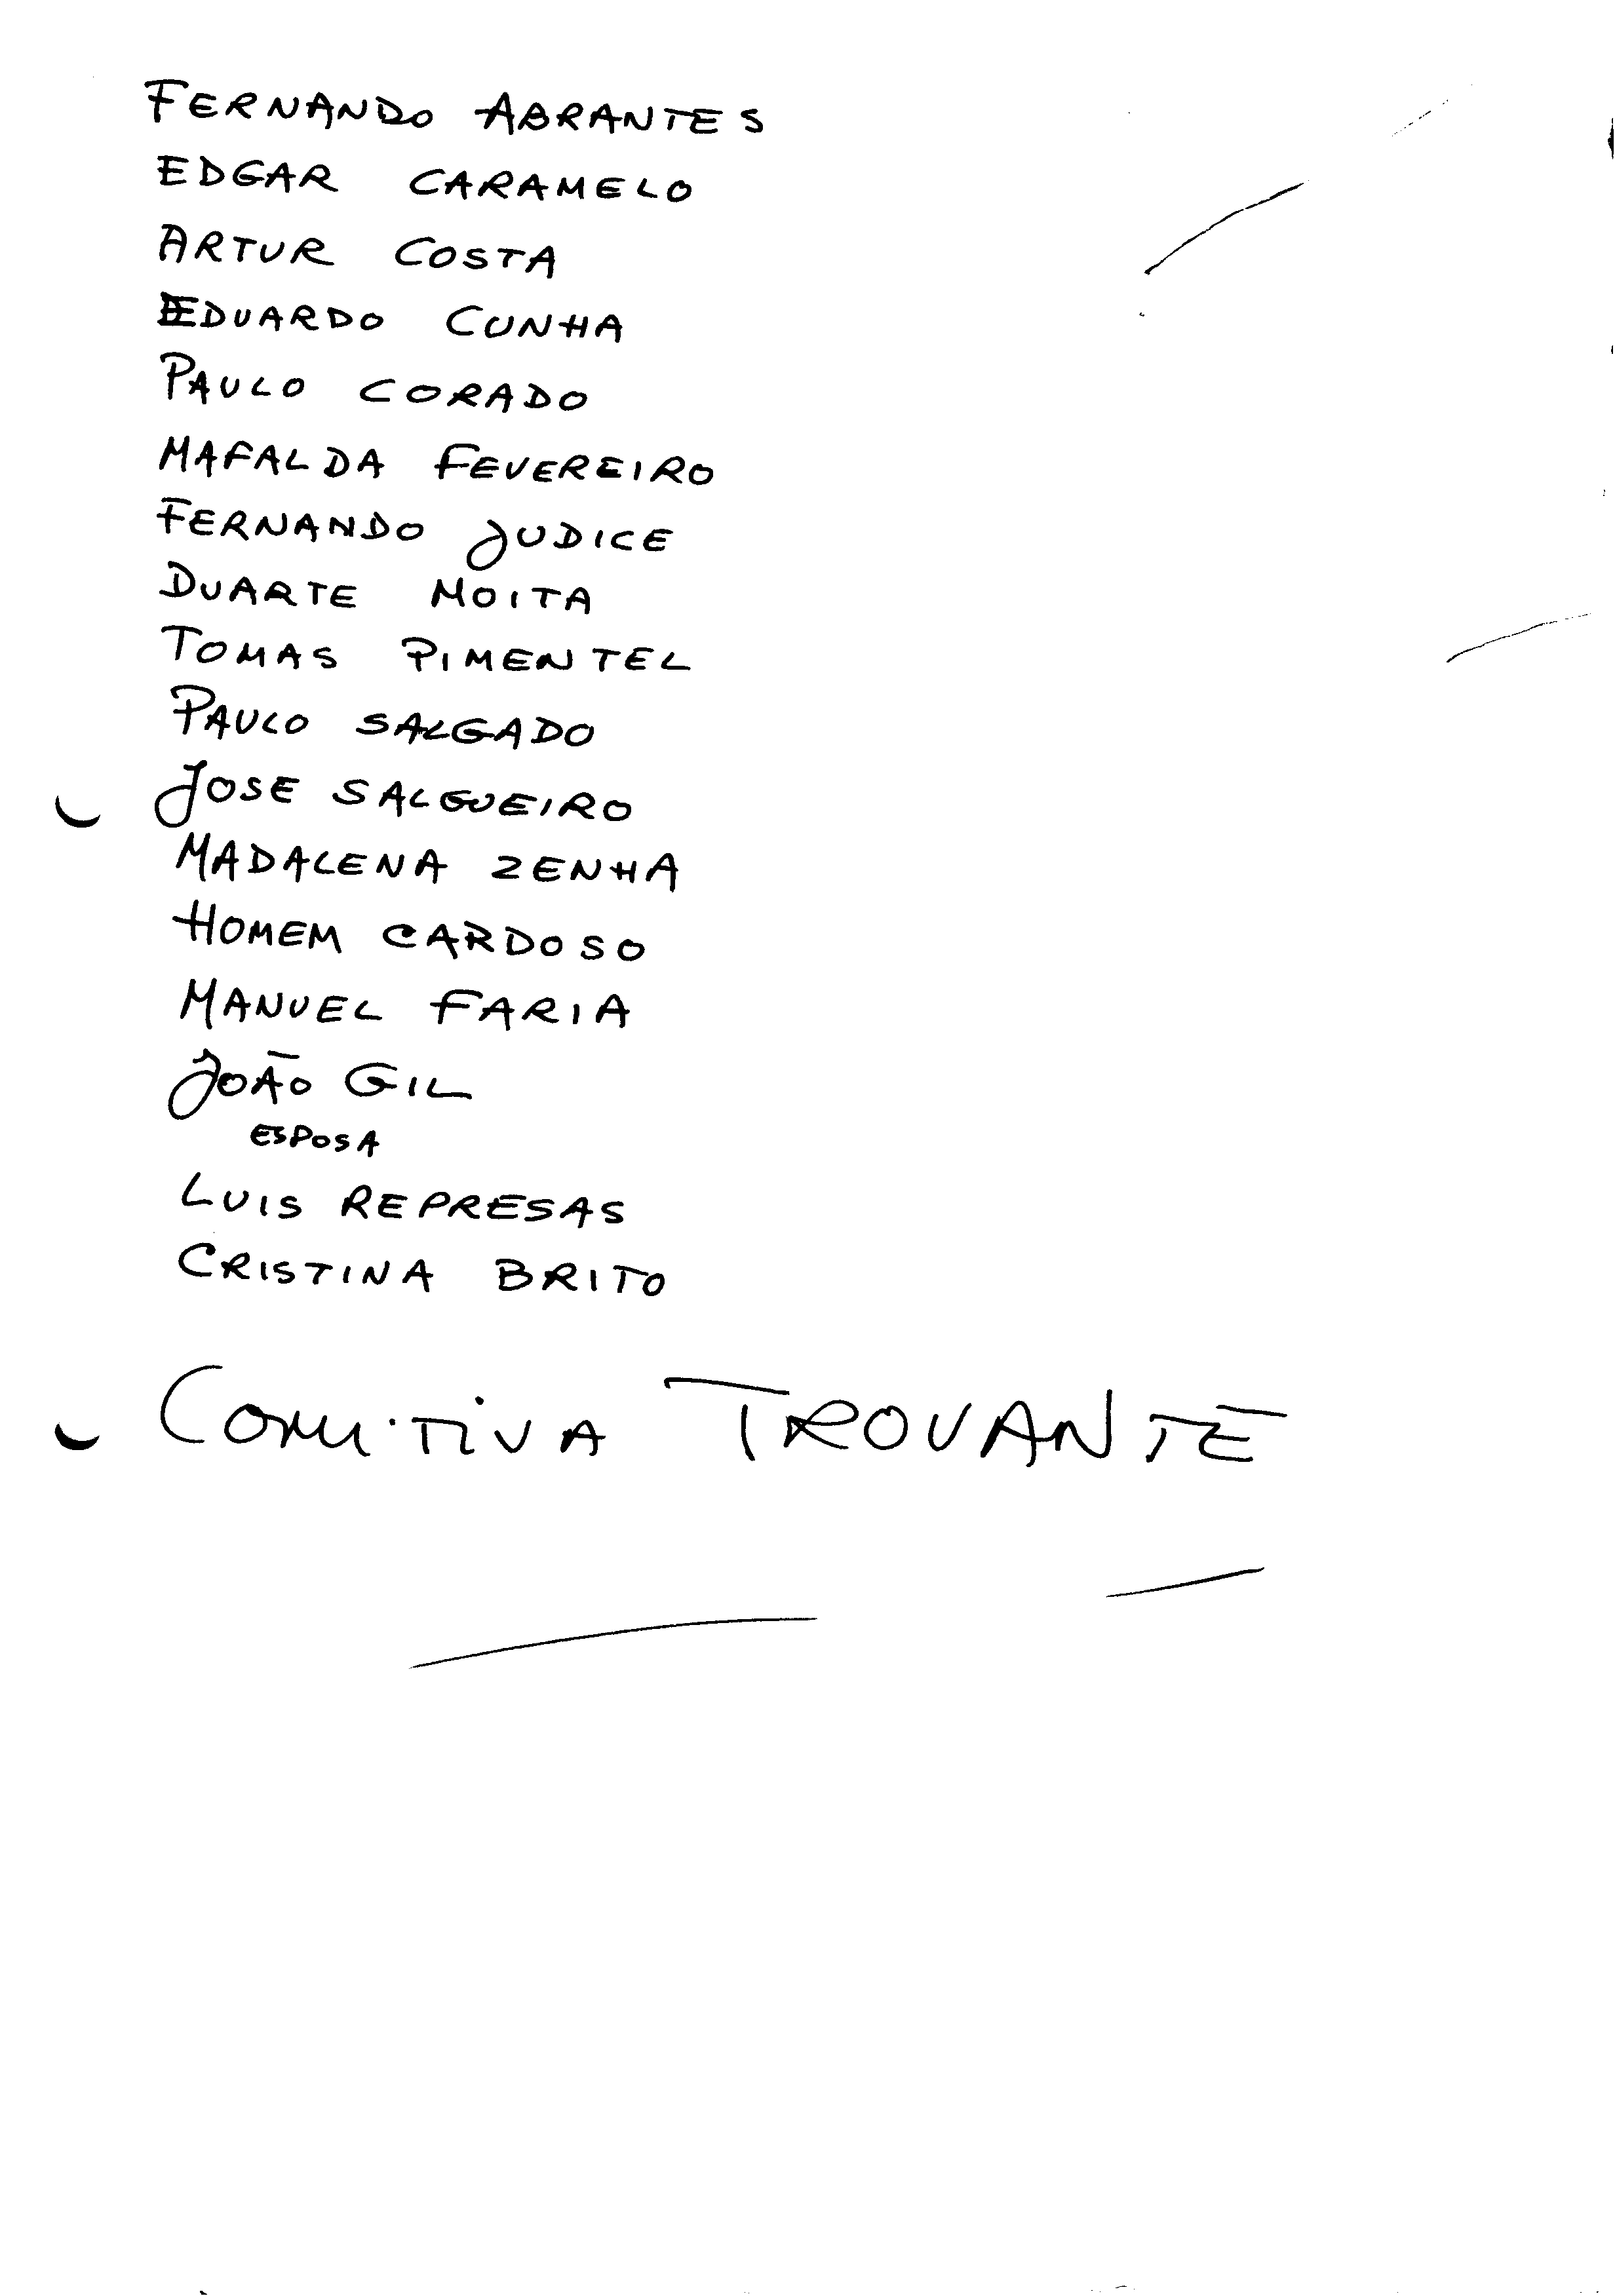 FERNANDO ABRANTES
EDGAR CARAMELO
ARTUR COSTA
EDUARDO CUNHA
PAULO CORADO
MAFALDA FEVEREIRO
FERNANDO JUDICE
DUARTE MOITA
TOMAS PIMENTEL
PAULO SALGADO
JOSE SALGUEIRO
MADALENA ZENHA
HOMEM CARDOSO
MANUEL FARIA
JOÃO GIL
ESPOSA
LUIS REPRESAS
CRISTINA BRITO
COMITIVA TROVANTE